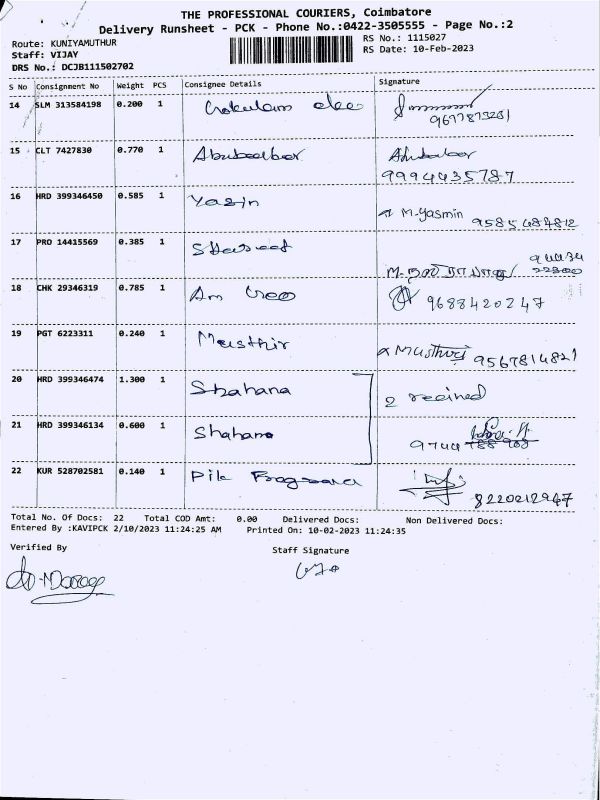 THE PROFESSIONAL COURIERS, Coimbatore
Delivery Runsheet - PCK - Phone No.:0422-3505555 - Page No.:2
Route: KUNIYAMUTHUR
RS No.: 1115027
Staff: VIJAY
RS Date: 10-Feb-2023
DRS No.: DCJB111502702
S No Consignment No Weight PCS Consignee Details Signature
14 SLM 313584198 0.200 1
15 CLT 7427830 0.770 1 Abubacker Abubacker
9994435787
16 HRD 399346450 0.585 1 Yasin M-Yasmin 9585484812
17 PRO 14415569 0.385 1
18 CHK 29346319 0.785 1 Am 9688420247
19 PGT 6223311 0.240 1 Musthir 9567814821
20 HRD 399346474 1.300 1 Shahana 2 received
21 HRD 399346134 0.600 1 Shahana
22 KUR 528702581 0.140 1 8220212947
Total No. Of Docs: 22 Total COD Amt: 0.00 Delivered Docs: Non Delivered Docs:
Entered By :KAVIPCK 2/10/2023 11:24:25 AM Printed On: 10-02-2023 11:24:35
Verified By
Staff Signature